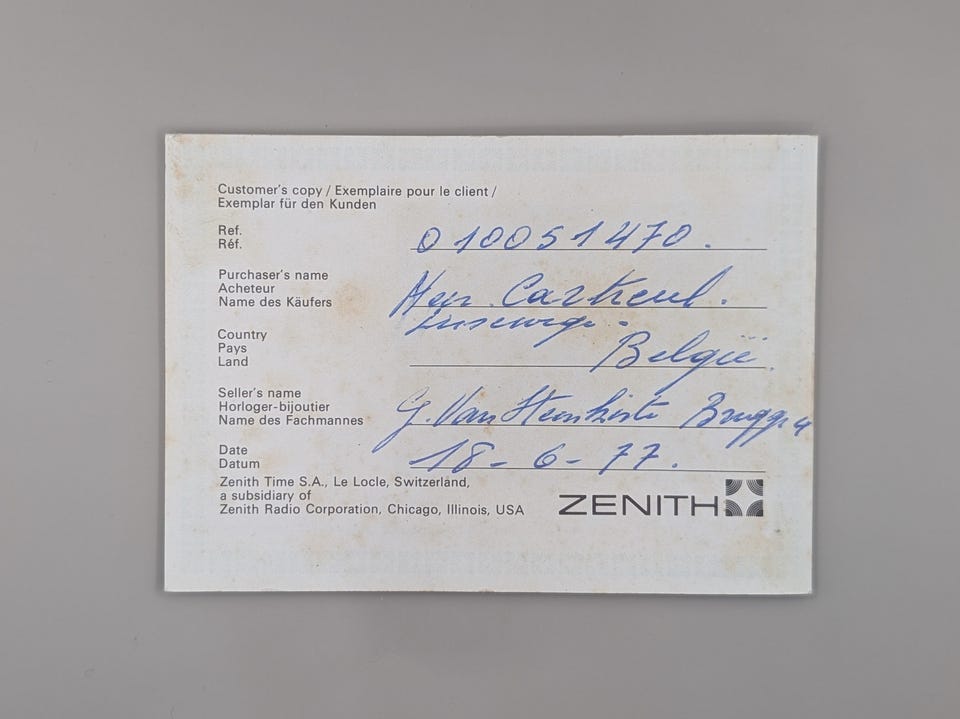 Customer's copy / Exemplaire pour le client /
Exemplar für den Kunden
Ref.
Réf.
010051470.
Purchaser's name
Acheteur
Name des Käufers
Country
Pays
Land
België.
Seller's name
Horloger-bijoutier
Name des Fachmannes
G. Van
Date
Datum
18-6-77.
Zenith Time S.A., Le Locle, Switzerland,
a subsidiary of
Zenith Radio Corporation, Chicago, Illinois, USA
ZENITH